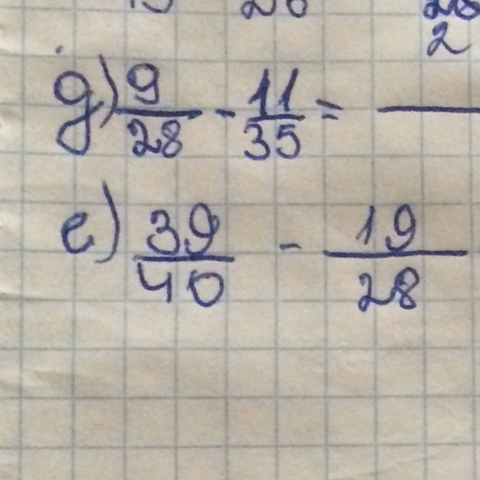 28
2
д) 9/28 - 11/35 =
е) 39/40 - 19/28